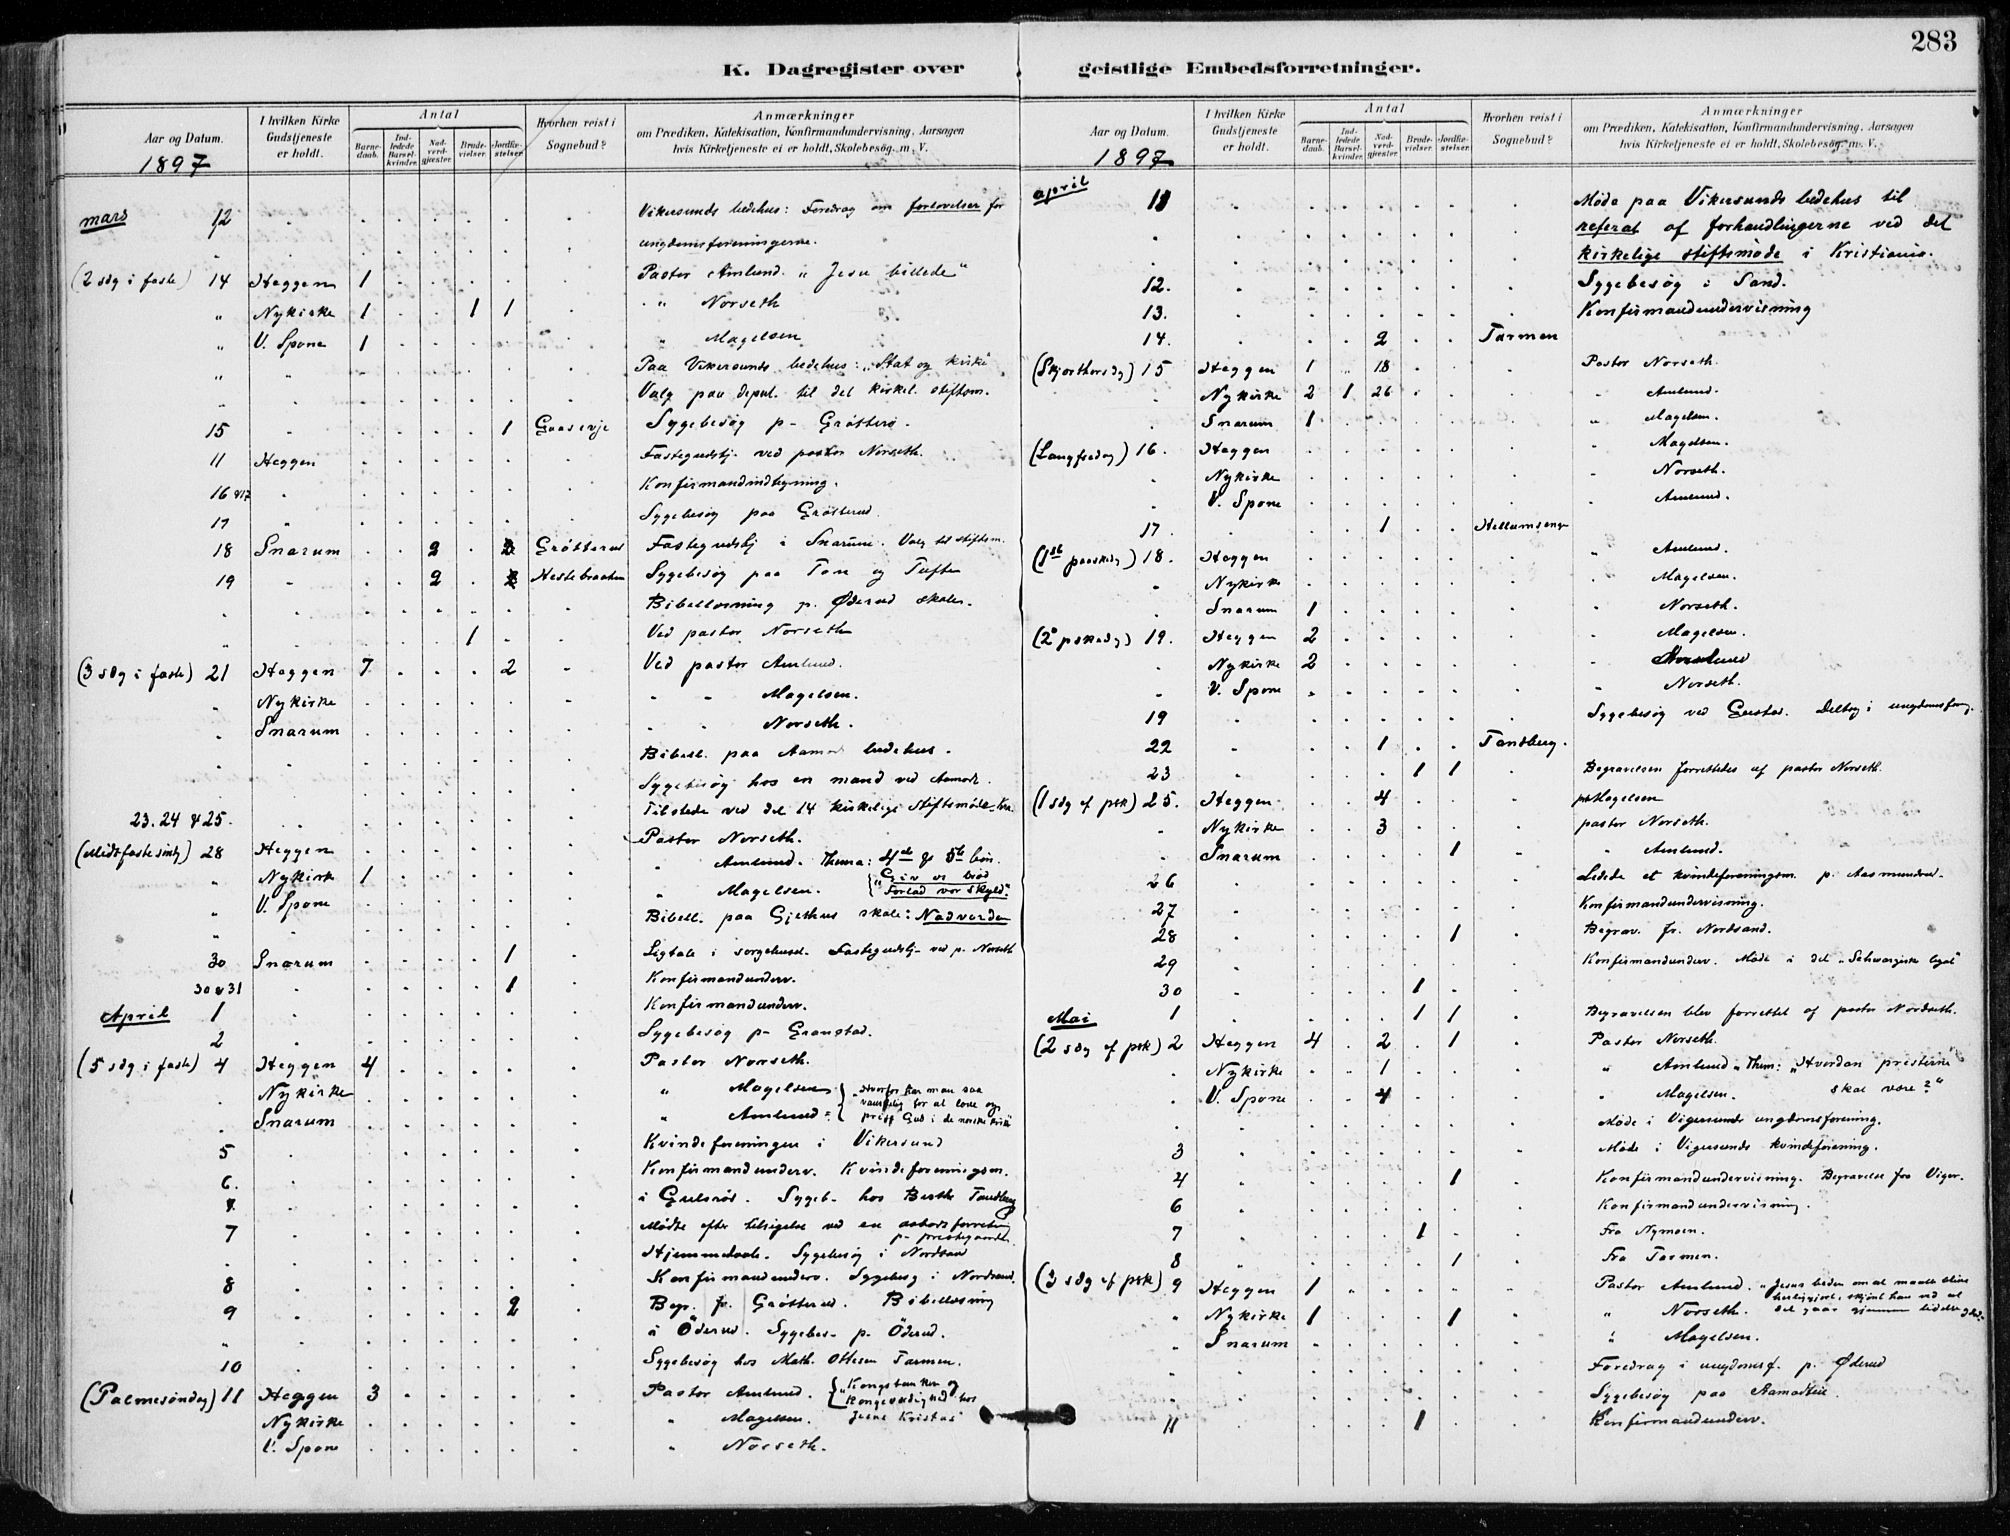 283
K. Dagregister over
geistlige Embedsforretninger.
Aar og Datum. 1897
I hvilken Kirke Gudstjeneste er holdt.
Antal
Barnedaab. Indledede Barselkvinder. Nadverdgjester. Brudevielser. Jordfæstelser.
Hvorhen reist i Sognebud?
Anmærkninger
om Prædiken, Katekisation, Konfirmandundervisning, Aarsagen
hvis Kirketjeneste ei er holdt, Skolebesøg. m. V.
mars 12 Vikersunds bedehus: Foredrag om forlovelser for
ungdomsforeningerne.
(2 sdg i faste) 14 Heggen 1 Pastor Amlund. "Jesu billede"
" Nykirke 1 1 1 " Norseth
" V. Spone 1 " Magelsen
Paa Vikersunds bedehus: "Stat og kirke"
Valg paa deput. til det kirkel. stiftsm.
15 1 Gaaserje Sygebesøg p-
11 Heggen Fastegudstj. ved pastor Norseth.
16 & 17 Konfirmandindtegning.
17 Sygebesøg paa Grøtterud
18 Snarum 2 Grøtterud Fastegudstj i Snarum. Valg til stiftsm.
19 2 Hestebraaten Sygebesøg paa Ton og Tufte
Bibellæsning p. Øderud skole.
1 Ved pastor Norseth
(3 sdg i faste) 21 Heggen 7 2 Ved pastor Amlund.
" Nykirke " " Magelsen.
" Snarum " " Norseth.
Bibell. paa Aamot bedehus.
Sygebesøg hos en mand ved Aamodt.
23. 24 & 25. Tilstede ved det 14 kirkelige stiftsmøde Kra.
(Midtfastesøndg) 28 Heggen Pastor Norseth.
" Nykirke 1 " Amlund. Thema: 4de og 5te bøn.
" V. Spone " Magelsen. { "Giv os brød "Forlad vor skyld"
Bibell. paa Gjethus skole: Nadverden
30 Snarum 1 Ligtale i sørgehuset. Fastegudstj- ved p. Norseth
30 & 31 1 Konfirmandunderv.
April 1 Konfirmandunderv.
2 Sygebesøg p- Granstad.
(5 sdg i faste) 4 Heggen 4 Pastor Norseth.
Nykirke " Magelsen { "Hvorfor har man saa
Snarum " Amlund = { vanskelig for at love og prise Gud i de norske kirk"
5 Kvindeforeningen i Vikersund
6. Konfirmandunderv. Kvindeforeningsm.
i Gulsrød. Sygeb- hos Berthe Tandberg
7 Mødte efter tilsigelse ved en aabodsforretning
p- prestegaarden
Hjemmedaab. Sygebesøg i Nordsand
8 Konfirmandunderv. Sygebesg i Nordsand.
9 2 Begr. fr. Grøtterud. Bibellæsning
i Øderud. Sygebes- p. Øderud.
10 Sygebesøg hos Math. Ottesen Tarmen.
(Palmesøndag) 11 Heggen 3 Pastor Amlund. { "Kongetanken og
Nykirke " Magelsen. kongeværdighed hos Jesus Kristus"
V. Spone " Norseth.
Aar og Datum. 1897
I hvilken Kirke Gudstjeneste er holdt.
Antal
Barnedaab. Indledede Barselkvinder. Nadverdgjester. Brudevielser. Jordfæstelser.
Hvorhen reist i Sognebud?
Anmærkninger
om Prædiken, Katekisation, Konfirmandundervisning, Aarsagen
hvis Kirketjeneste ei er holdt, Skolebesøg. m. V.
april 11 Møde paa Vikersunds bedehus til
referat af forhandlingerne ved det
kirkelige stiftsmøde i Kristiania.
12. Sygebesøg i Sand.
13. Konfirmandundervisning
14. 2 Tarmen
(Skjærthorsdg) 15 Heggen 1 18 Pastor Norseth.
Nykirke 2 1 26 " Amlund.
Snarum 1 " Magelsen.
(Langfredag) 16. Heggen " Magelsen.
Nykirke " Norseth.
V. Spone " Amlund.
17. 1 Hellumseng
(1ste paaskedg) 18. Heggen " Amlund.
Nykirke " Magelsen.
Snarum 1 " Norseth.
(2n pskedg) 19. Heggen 2 " Magelsen.
Nykirke 2
V. Spone " Norseth.
19 Sygebesøg ved Deltog i ungdomsforg.
22 1 Tandberg.
23 1 1 Begravelsen forrettedes af pastor Norseth.
(1 sdg ef psk) 25. Heggen 4 Magelsen
Nykirke 3 pastor Norseth.
Snarum 1 " Amlund.
26 Ledede et kvindeforeningsm. p. Aasmundrud.
27 Konfirmandundervisning.
28 1 Begrav. fr. Nordsand.
29 Konfirmandunderv. Møde i det "Schwarziske legat"
30 1
Mai 1 1 1 Begravelsen blev forrettet af pastor Nordseth.
(2 sdg ef psk) 2 Heggen 4 2 1 Pastor Norseth.
Nykirke 1 " Amlund "Them: "Hvordan presterne
V. Spone 4 " Magelsen. skal være?"
Møde i Vigersunds ungdomsforening.
3 Møde i Vigersunds kvindeforening.
4 1 Konfirmandundervisning. Begravelse fra Viger.
6 Konfirmandundervisning.
7 1 Fra Nymoen.
8 1 Fra Tarmen.
(3 sdg ef psk) 9 Heggen 1 Pastor Amlund. "Jesus beden om at maatte blive
herliggjort, skjønt han ved at
" Nykirke 1 1 " Norseth. det gaar gjennem lidelse
" Snarum " Magelsen.
Foredrag i ungdomsf. p. Øderud
Sygebesøg paa
11 1 Konfirmandunderv.